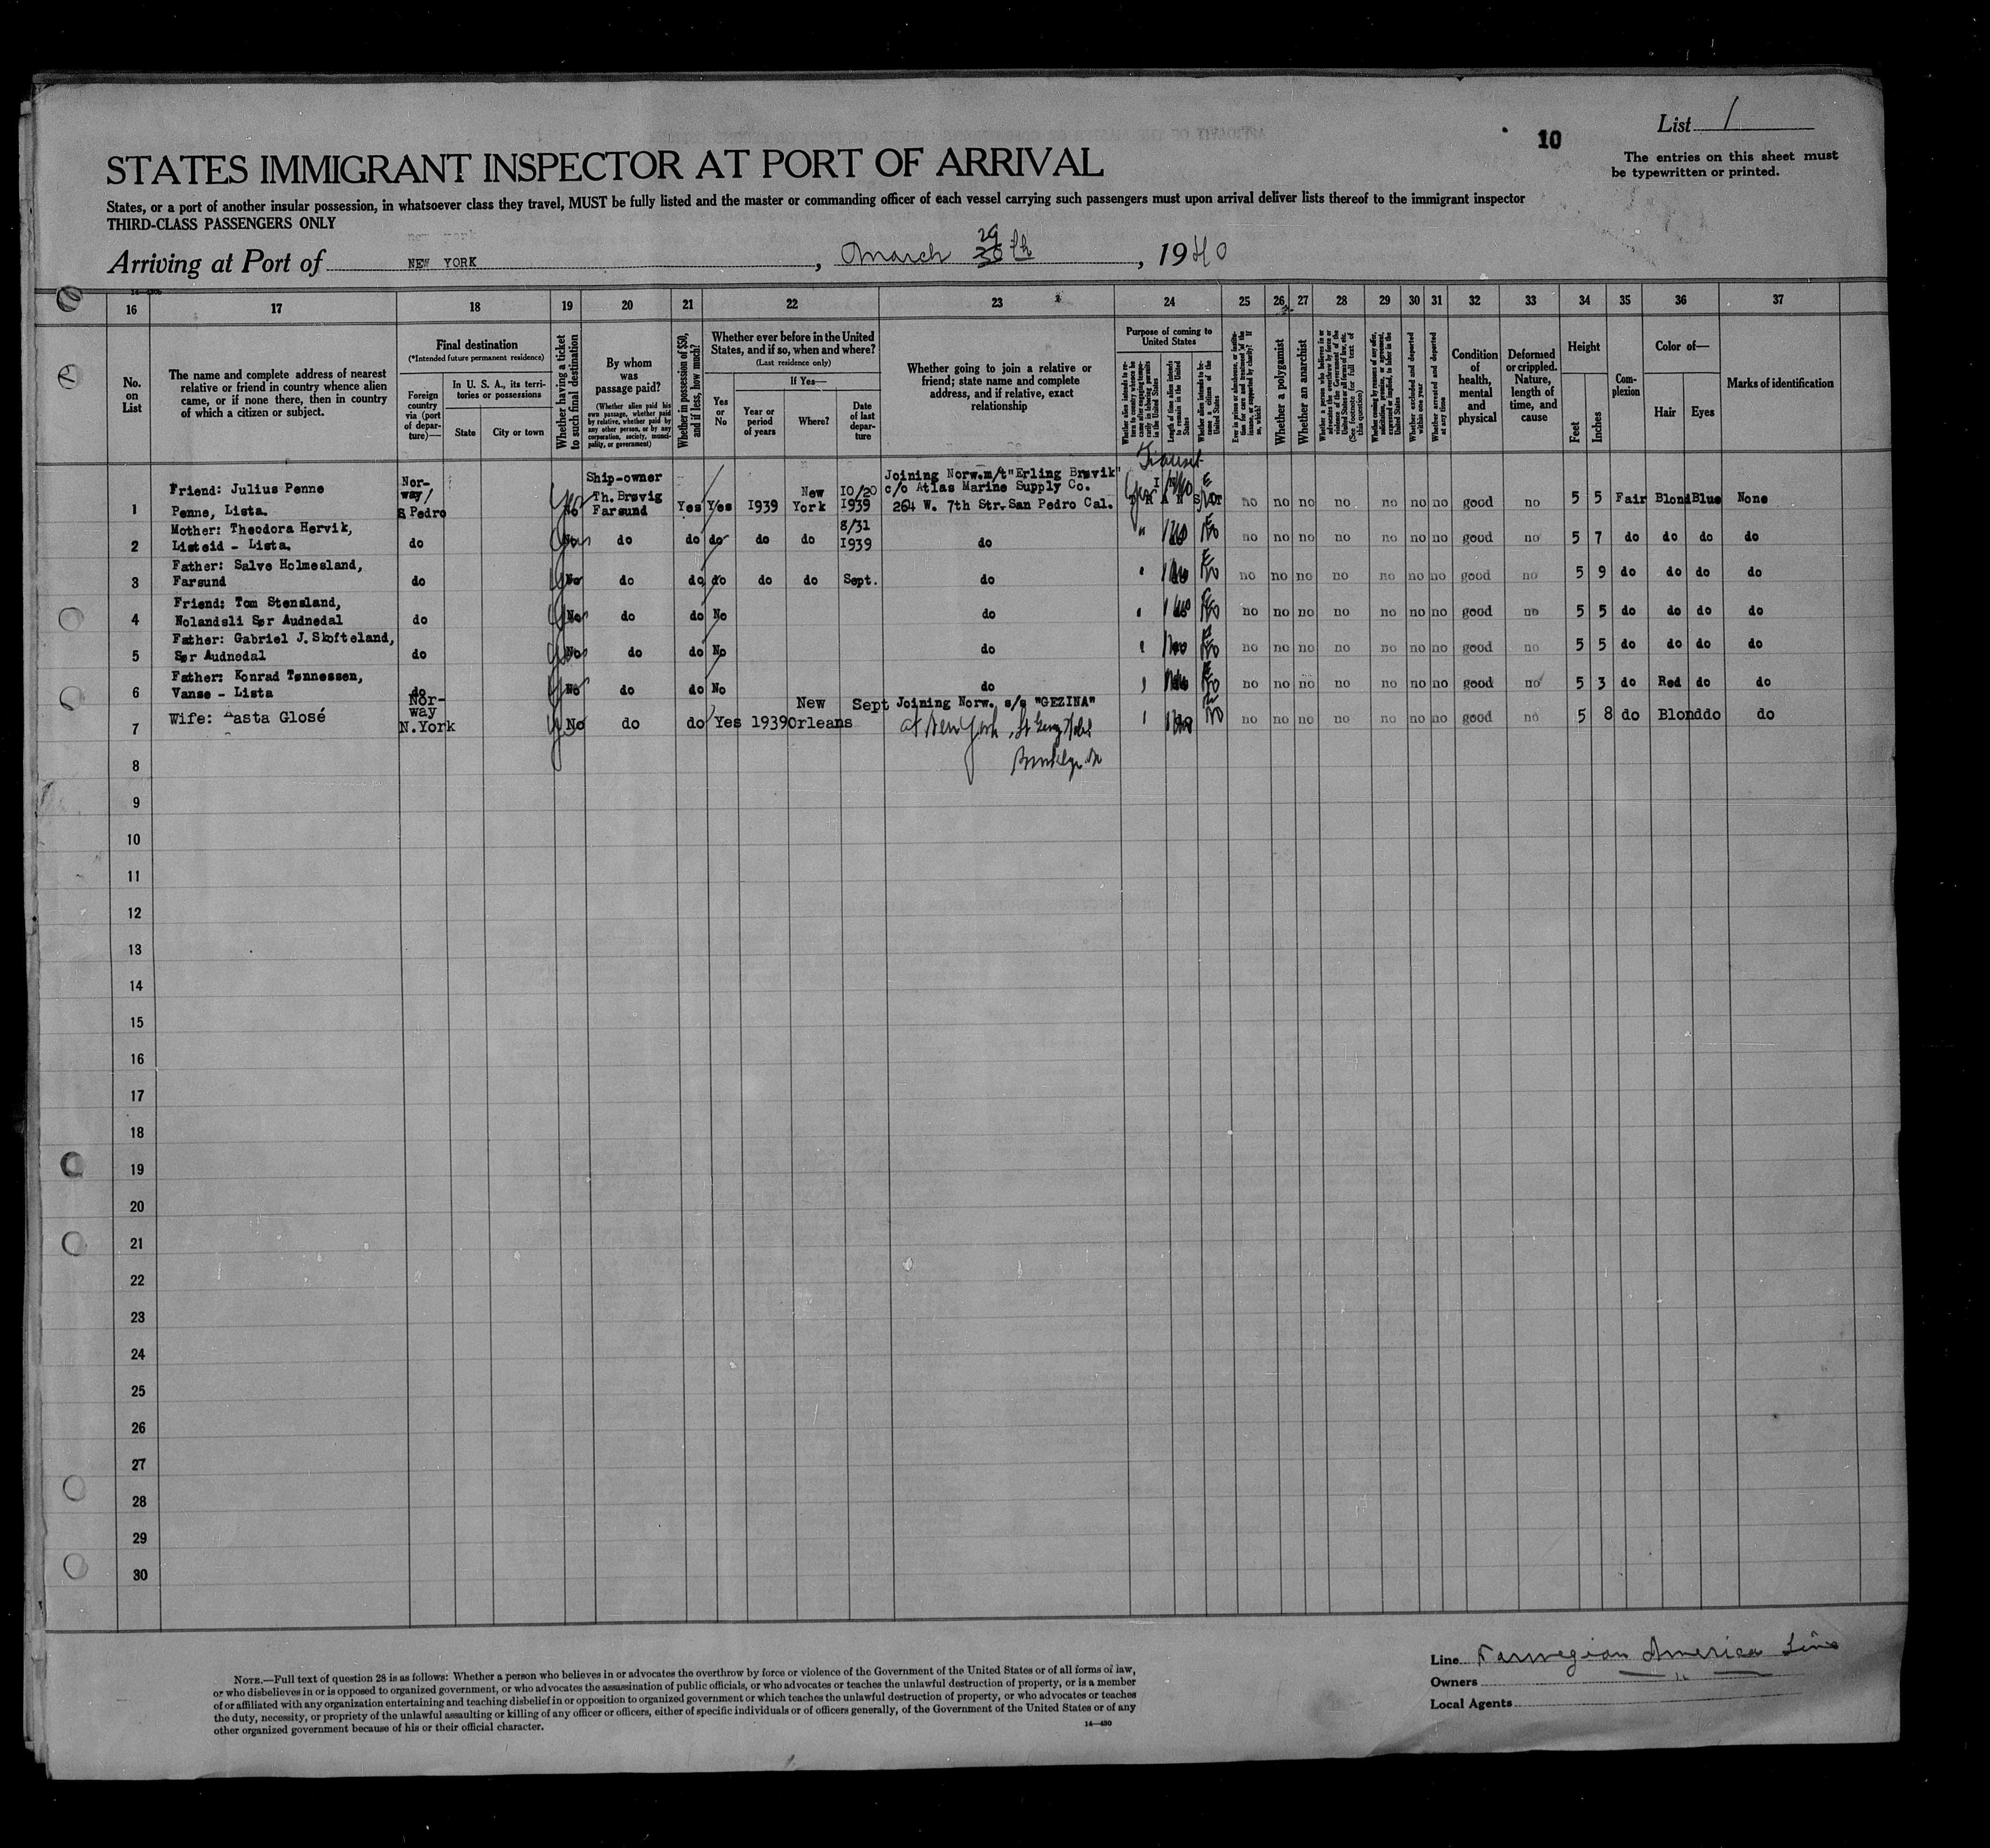 List 1
10
The entries on this sheet must
be typewritten or printed.
STATES IMMIGRANT INSPECTOR AT PORT OF ARRIVAL
States, or a port of another insular possession, in whatsoever class they travel, MUST be fully listed and the master or commanding officer of each vessel carrying such passengers must upon arrival deliver lists thereof to the immigrant inspector
THIRD-CLASS PASSENGERS ONLY
Arriving at Port of NEW YORK, March 29 30 th, 1940
16 17 18 19 20 21 22 23 24 25 26 27 28 29 30 31 32 33 34 35 36 37
No.
on
List
The name and complete address of nearest
relative or friend in country whence alien
came, or if none there, then in country
of which a citizen or subject.
Final destination
(*Intended future permanent residence)
Foreign
country
via (port
of depar-
ture)—
In U. S. A., its terri-
tories or possessions
State
City or town
Whether having a ticket
to such final destination
By whom
was
passage paid?
(Whether alien paid his
own passage, whether paid
by relative, whether paid by
any other person, or by any
corporation, society, munici-
pality, or government)
Whether in possession of $50,
and if less, how much?
Whether ever before in the United
States, and if so, when and where?
(Last residence only)
Yes
or
No
If Yes—
Year or
period
of years
Where?
Date
of last
depar-
ture
Whether going to join a relative or
friend; state name and complete
address, and if relative, exact
relationship
Purpose of coming to
United States
Length of time alien intends
to remain in the United
States
Whether alien intends to be-
come a citizen of the
United States
Whether a polygamist
Whether an anarchist
Whether excluded and deported
within one year
Whether arrested and deported
at any time
Condition
of
health,
mental
and
physical
Deformed
or crippled.
Nature,
length of
time, and
cause
Height
Feet
Inches
Com-
plexion
Color of—
Hair
Eyes
Marks of identification
Transit
1 Friend: Julius Penne
Penne, Lista.
Nor-
way/
S Pedro
No
Ship-owner
Th. Brøvig
Farsund
Yes Yes 1939 New
York 10/20
1939
Joining Norw.m/t"Erling Brøvik"
c/o Atlas Marine Supply Co.
264 W. 7th Str. San Pedro Cal.
no no no no no no no good no 5 5 Fair Blond Blue None
2 Mother: Theodora Hervik,
Listeid - Lista.
do No do do do do do 8/31
1939 do no no no no no no no good no 5 7 do do do do
3 Father: Salve Holmesland,
Farsund
do No do do do do do Sept. do no no no no no no no good no 5 9 do do do do
4 Friend: Tom Stensland,
Nolandsli Sør Audnedal
do No do do No do no no no no no no no good no 5 5 do do do do
5 Father: Gabriel J. Skofteland,
Sør Audnedal
do No do do No do no no no no no no no good no 5 5 do do do do
6 Father: Konrad Tønnessen,
Vanse - Lista
do No do do No do no no no no no no no good no 5 3 do Red do do
7 Wife: Aasta Glosé
Nor-
way
N.York
No do do Yes 1939 New
Orleans Sept
Joining Norw. s/s "GEZINA"
at New York, St George Hotel
Brooklyn
no no no no no no no good no 5 8 do Blond do do
8
9
10
11
12
13
14
15
16
17
18
19
20
21
22
23
24
25
26
27
28
29
30
NOTE.—Full text of question 28 is as follows: Whether a person who believes in or advocates the overthrow by force or violence of the Government of the United States or of all forms of law,
or who disbelieves in or is opposed to organized government, or who advocates the assassination of public officials, or who advocates or teaches the unlawful destruction of property, or is a member
of or affiliated with any organization entertaining and teaching disbelief in or opposition to organized government or which teaches the unlawful destruction of property, or who advocates or teaches
the duty, necessity, or propriety of the unlawful assaulting or killing of any officer or officers, either of specific individuals or of officers generally, of the Government of the United States or of any
other organized government because of his or their official character.
14—430
Line Norwegian America Line
Owners "
Local Agents